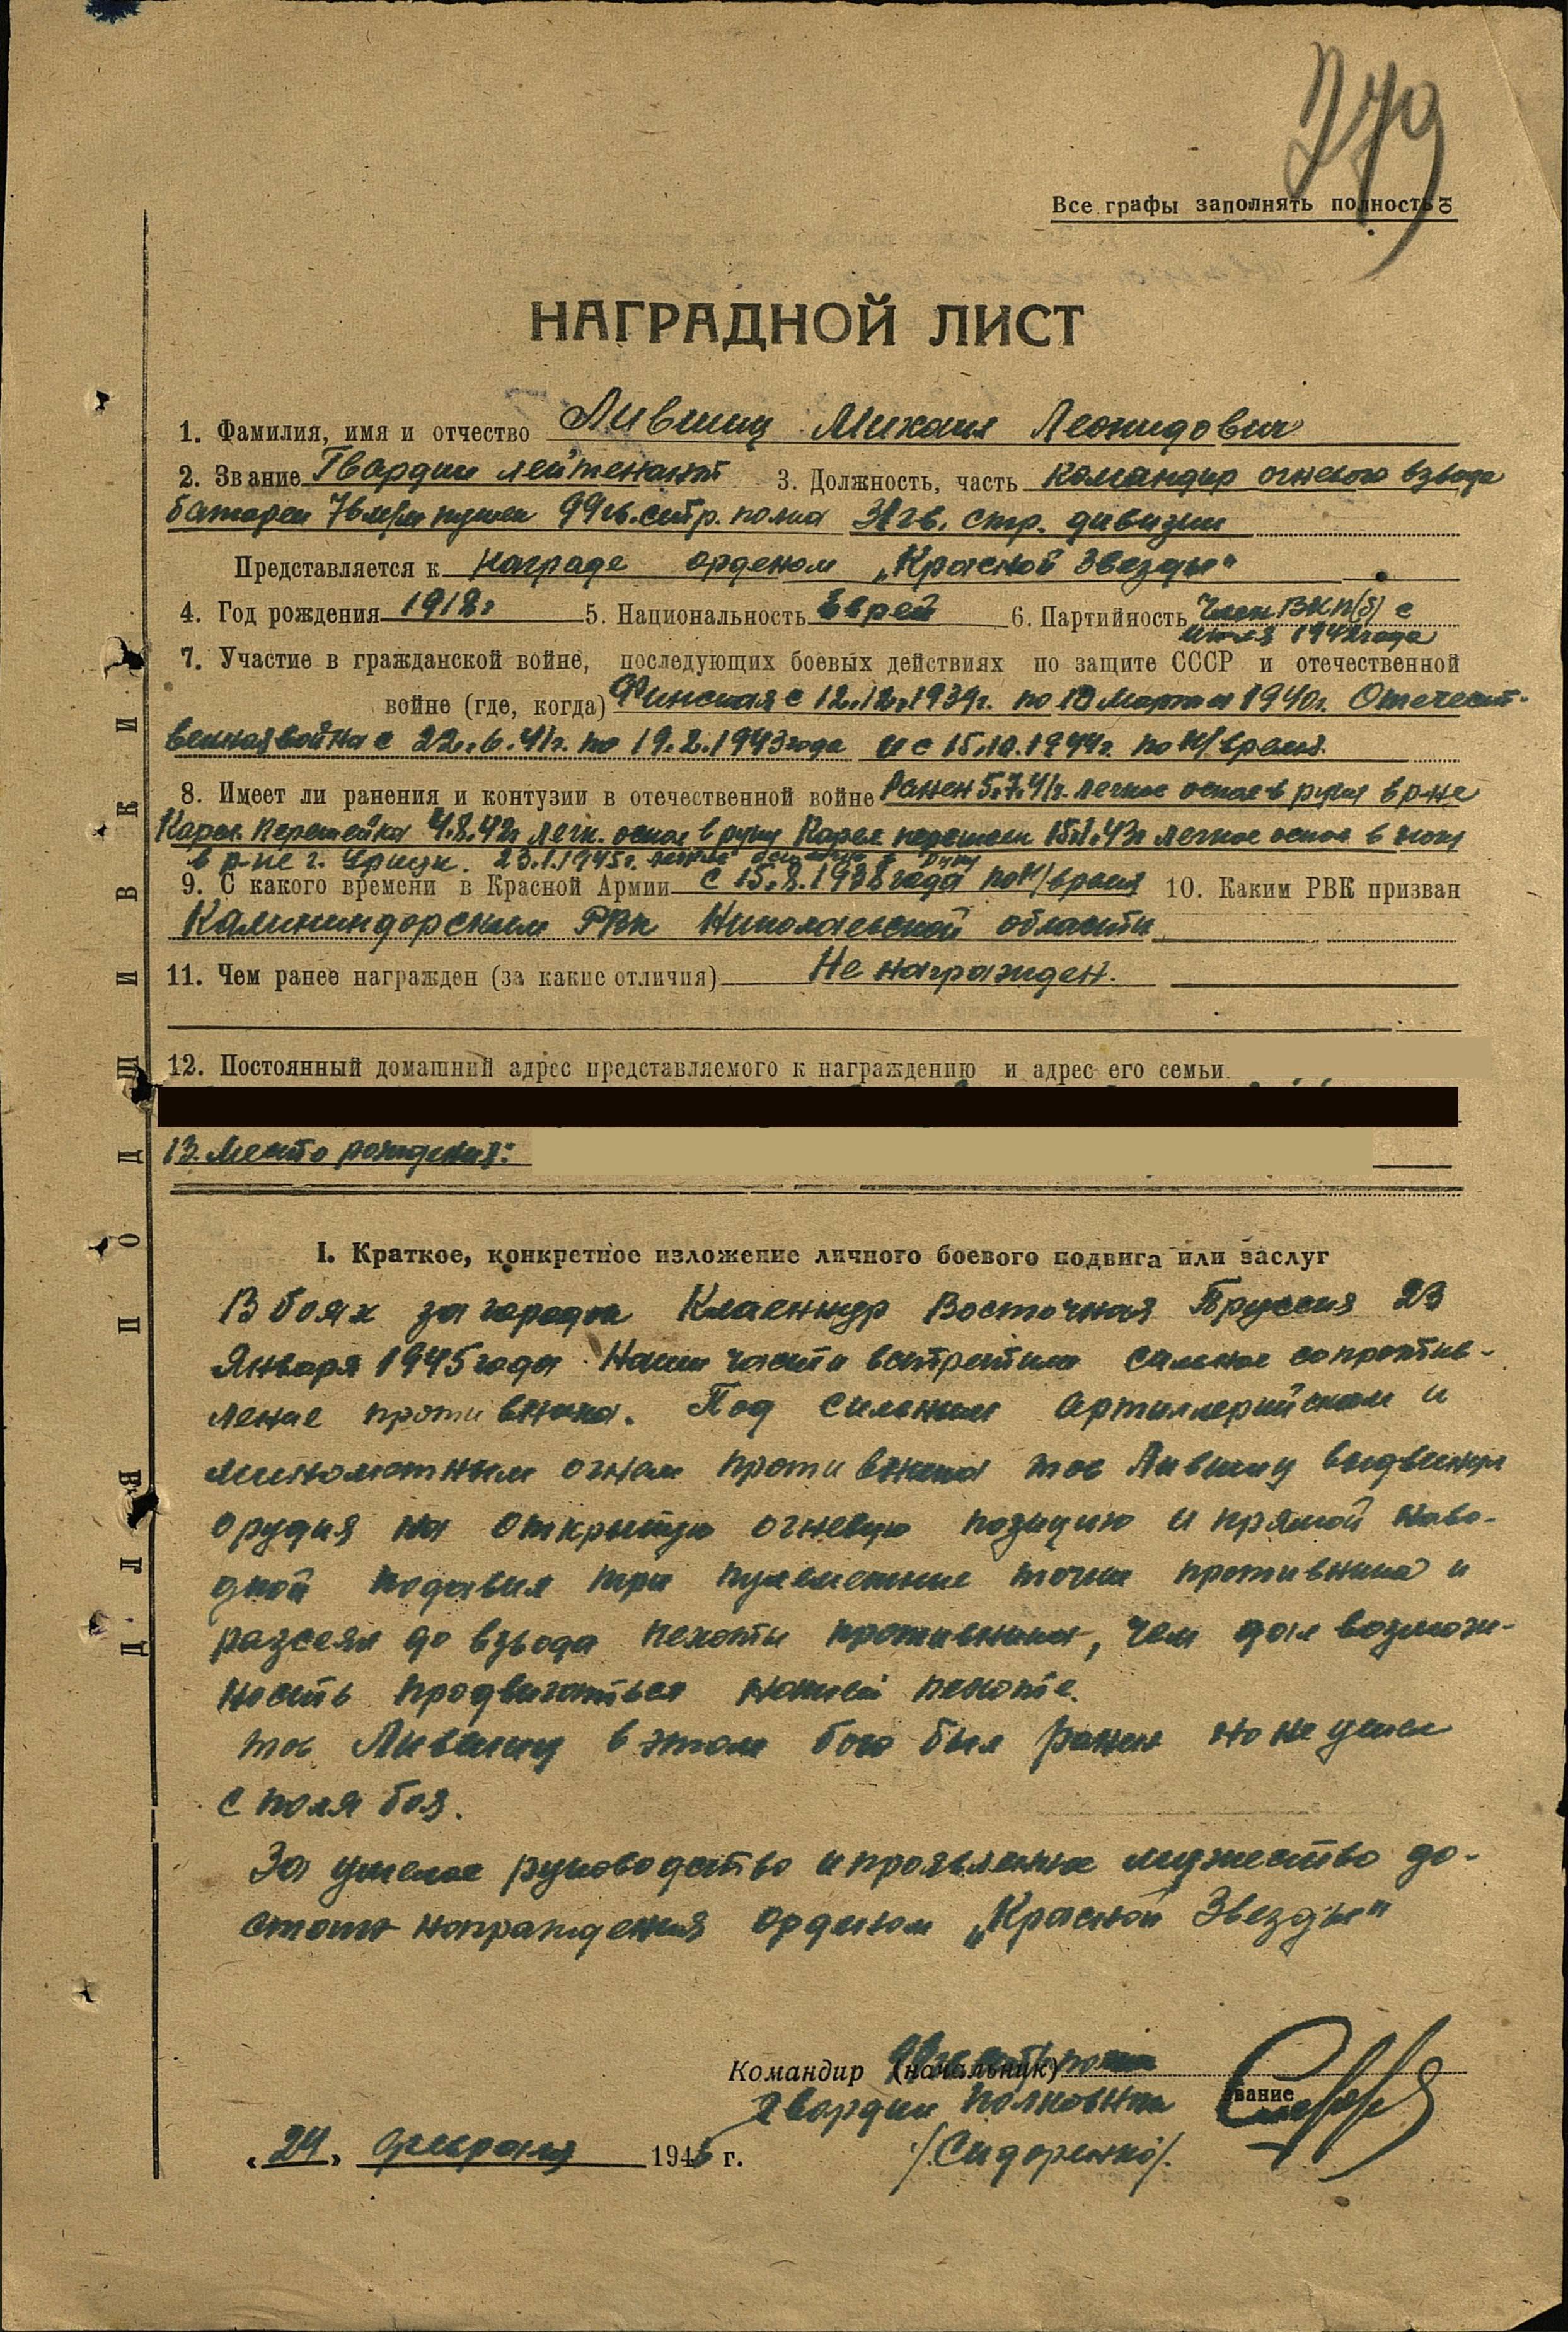 279
Все графы заполнять полностью
НАГРАДНОЙ ЛИСТ
1. Фамилия, имя и отчество Лившиц Михаил Леонидович
2. Звание Гвардии лейтенант 3. Должность, часть командир огневого взвода
батареи 76 м/м пушек 99 гв. стр. полка 31 гв. стр. дивизии
Представляется к награде орденом „Красной Звезды"
4. Год рождения 1912г 5. Национальность Еврей 6. Партийность Член ВКП(б) с
1942 года
7. Участие в гражданской войне, последующих боевых действиях по защите СССР и отечественной
войне (где, когда) Финская с 12.12.1939г. по 13 марта 1940г. Отечест-
венная война с 22.6.41г. по 19.2.1943 года и с 15.10.1944г. по н/время.
8. Имеет ли ранения и контузии в отечественной войне Ранен 5.7.41г. легкое оскол в руку в р-не
Карел. Перешейка 4.8.42г легк. оскол в руку Карел перешеек 15.2.43г легкое оскол в ногу
в р-не г. 23.1.1945г. в руку
9. С какого времени в Красной Армии с 15.8.1938 года по н/время 10. Каким РВК призван
Калининдорским РВК Николаевской области
11. Чем ранее награжден (за какие отличия) Не награжден.
12. Постоянный домашний адрес представляемого к награждению и адрес его семьи
13. Место рождения:
I. Краткое, конкретное изложение личного боевого подвига или заслуг
В боях за городок Восточная Пруссия 23
Января 1945 года Наши части встретили сильное сопротив-
ление противника. Под сильным артиллерийским и
минометным огнем противника тов Лившиц выдвинул
орудия на открытую огневую позицию и прямой наво-
дкой подавил три пулеметные точки противника и
разсеял до взвода пехоты противника, чем дал возмож-
ность продвигаться нашей пехоте.
тов Лившиц в этом бою был ранен но не ушел
с поля боя.
За умелое руководство и проявленное мужество до-
стоин награждения орденом „Красной Звезды"
Командир (начальник) полка
гвардии полковник звание
/Сидоренко/.
„24" февраля 1945 г.
Д Л Я П О Д Ш И В К И